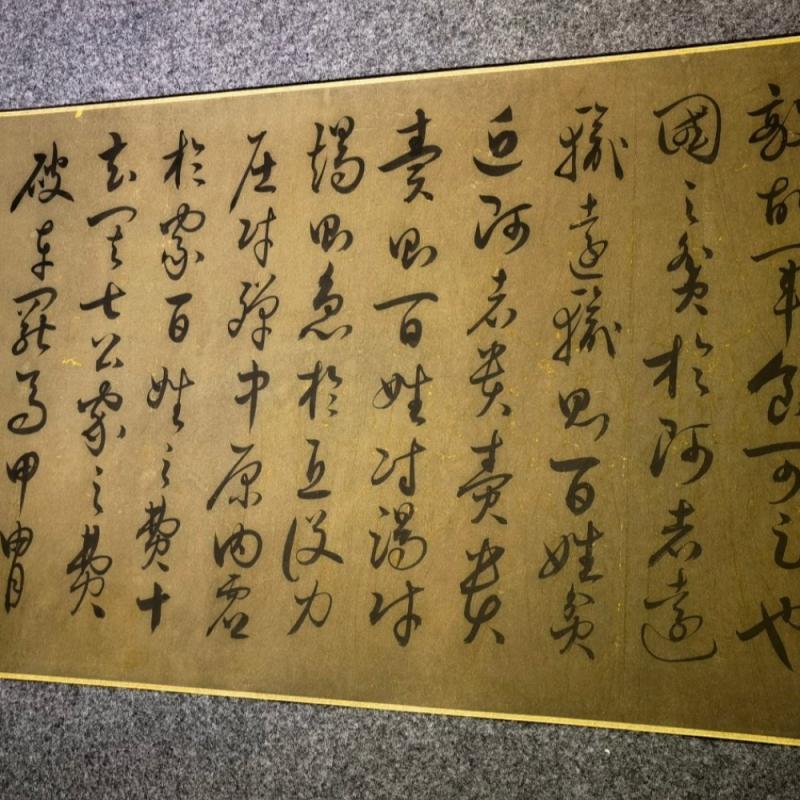 敵故軍食可足也
國之貧於師者遠
輸遠輸則百姓貧
近師者貴賣貴
賣則百姓財竭財
竭則急於丘役力
屈財殫中原內虛
於家百姓之費十
去其七公家之費
破車罷馬甲冑